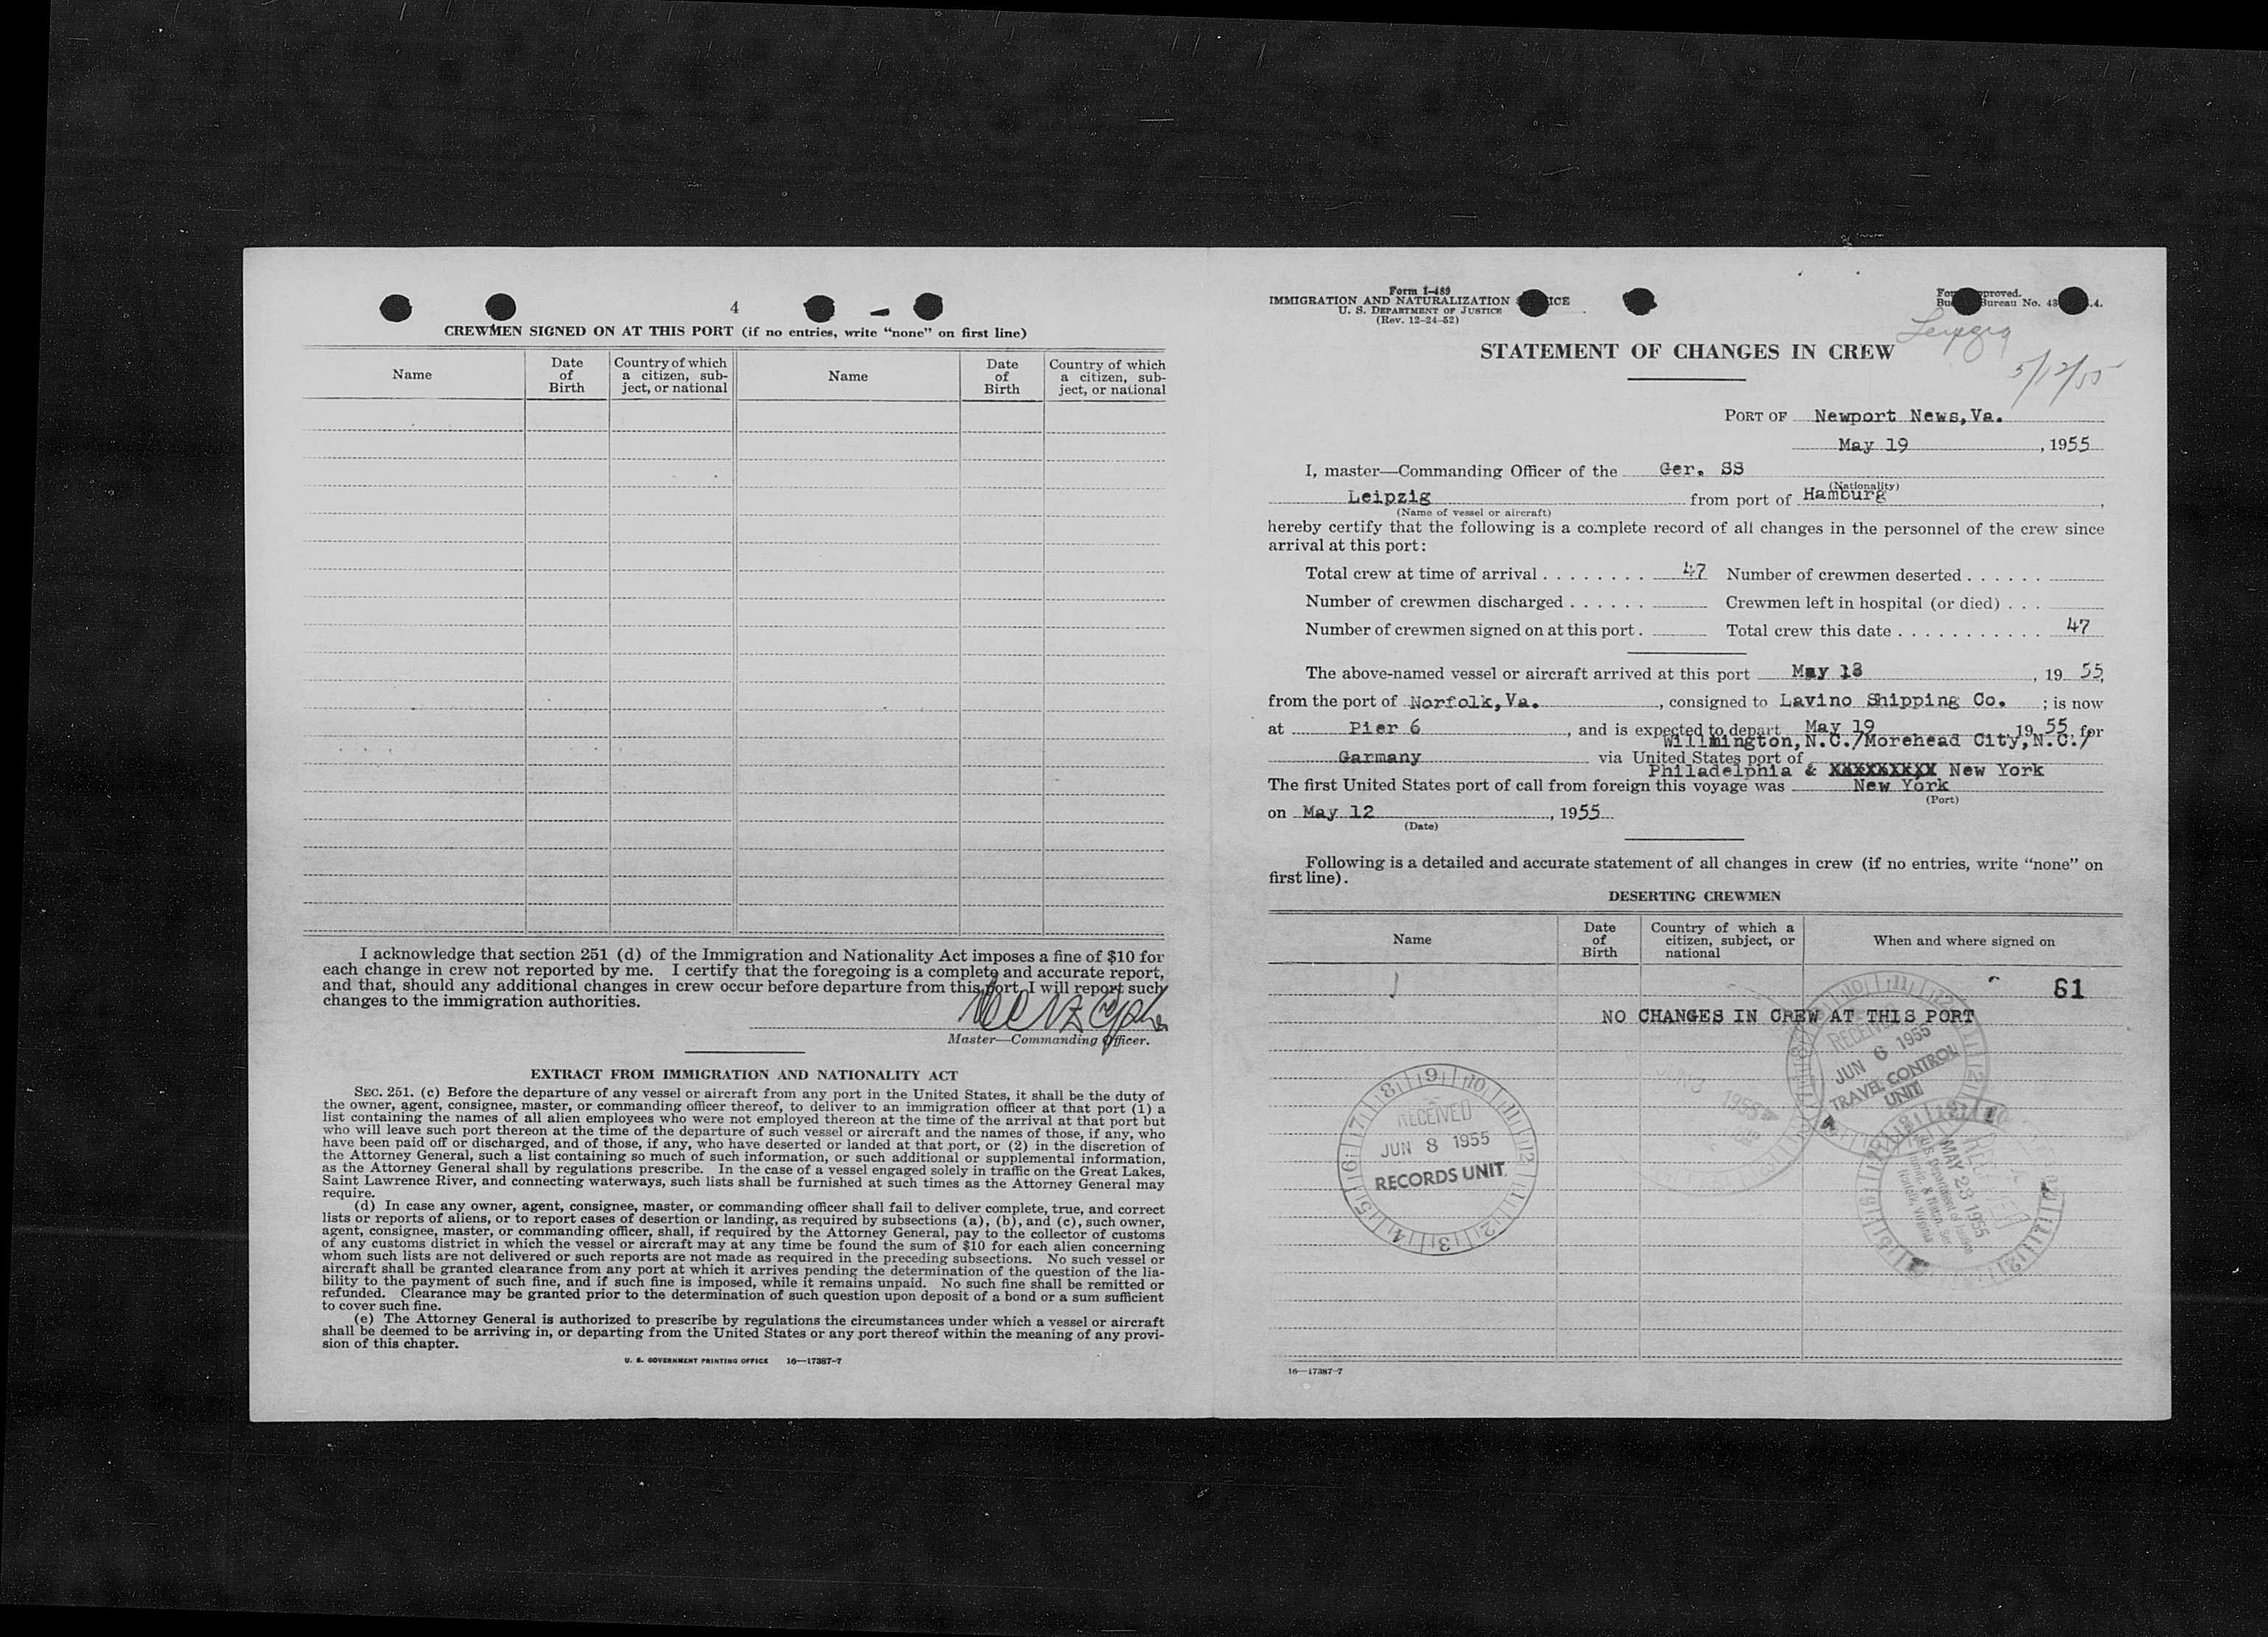 4
CREWMEN SIGNED ON AT THIS PORT (if no entries, write “none” on first line)
Name
Date of Birth
Country of which a citizen, sub-ject, or national
Name
Date of Birth
Country of which a citizen, sub-ject, or national
I acknowledge that section 251 (d) of the Immigration and Nationality Act imposes a fine of $10 for
each change in crew not reported by me. I certify that the foregoing is a complete and accurate report,
and that, should any additional changes in crew occur before departure from this port, I will report such
changes to the immigration authorities.
Master—Commanding Officer.
EXTRACT FROM IMMIGRATION AND NATIONALITY ACT
SEC. 251. (c) Before the departure of any vessel or aircraft from any port in the United States, it shall be the duty of
the owner, agent, consignee, master, or commanding officer thereof, to deliver to an immigration officer at that port (1) a
list containing the names of all alien employees who were not employed thereon at the time of the arrival at that port but
who will leave such port thereon at the time of the departure of such vessel or aircraft and the names of those, if any, who
have been paid off or discharged, and of those, if any, who have deserted or landed at that port, or (2) in the discretion of
the Attorney General, such a list containing so much of such information, or such additional or supplemental information,
as the Attorney General shall by regulations prescribe. In the case of a vessel engaged solely in traffic on the Great Lakes,
Saint Lawrence River, and connecting waterways, such lists shall be furnished at such times as the Attorney General may
require.
(d) In case any owner, agent, consignee, master, or commanding officer shall fail to deliver complete, true, and correct
lists or reports of aliens, or to report cases of desertion or landing, as required by subsections (a), (b), and (c), such owner,
agent, consignee, master, or commanding officer, shall, if required by the Attorney General, pay to the collector of customs
of any customs district in which the vessel or aircraft may at any time be found the sum of $10 for each alien concerning
whom such lists are not delivered or such reports are not made as required in the preceding subsections. No such vessel or
aircraft shall be granted clearance from any port at which it arrives pending the determination of the question of the lia-
bility to the payment of such fine, and if such fine is imposed, while it remains unpaid. No such fine shall be remitted or
refunded. Clearance may be granted prior to the determination of such question upon deposit of a bond or a sum sufficient
to cover such fine.
(e) The Attorney General is authorized to prescribe by regulations the circumstances under which a vessel or aircraft
shall be deemed to be arriving in, or departing from the United States or any port thereof within the meaning of any provi-
sion of this chapter.
U. S. GOVERNMENT PRINTING OFFICE 16—17387-7
Form I-489
IMMIGRATION AND NATURALIZATION
U. S. DEPARTMENT OF JUSTICE
(Rev. 12-24-52)
Bureau No.
Leipzig
5/12/55
STATEMENT OF CHANGES IN CREW
PORT OF Newport News,Va.
May 19, 1955
I, master—Commanding Officer of the Ger. SS
(Nationality)
Leipzig from port of Hamburg,
(Name of vessel or aircraft)
hereby certify that the following is a complete record of all changes in the personnel of the crew since
arrival at this port:
Total crew at time of arrival . . . . . . . . 47 Number of crewmen deserted . . . . . .
Number of crewmen discharged . . . . . . Crewmen left in hospital (or died) . . .
Number of crewmen signed on at this port . Total crew this date . . . . . . . . . . . 47
The above-named vessel or aircraft arrived at this port May 18, 19 55,
from the port of Norfolk,Va., consigned to Lavino Shipping Co. ; is now
at Pier 6, and is expected to depart May 19 19 55, for
Willmington,N.C./Morehead City,N.C./
Garmany via United States port of
Philadelphia & XXXXXXXXX New York
The first United States port of call from foreign this voyage was New York
(Port)
on May 12, 1955
(Date)
Following is a detailed and accurate statement of all changes in crew (if no entries, write “none” on
first line).
DESERTING CREWMEN
Name
Date of Birth
Country of which a citizen, subject, or national
When and where signed on
61
NO CHANGES IN CREW AT THIS PORT
RECEIVED
JUN 6 1955
TRAVEL CONTROL
UNIT
RECEIVED
JUN 8 1955
RECORDS UNIT
RECEIVED
MAY 23 1955
U.S. Department of Justice
Norfolk, Virginia
16—17387-7